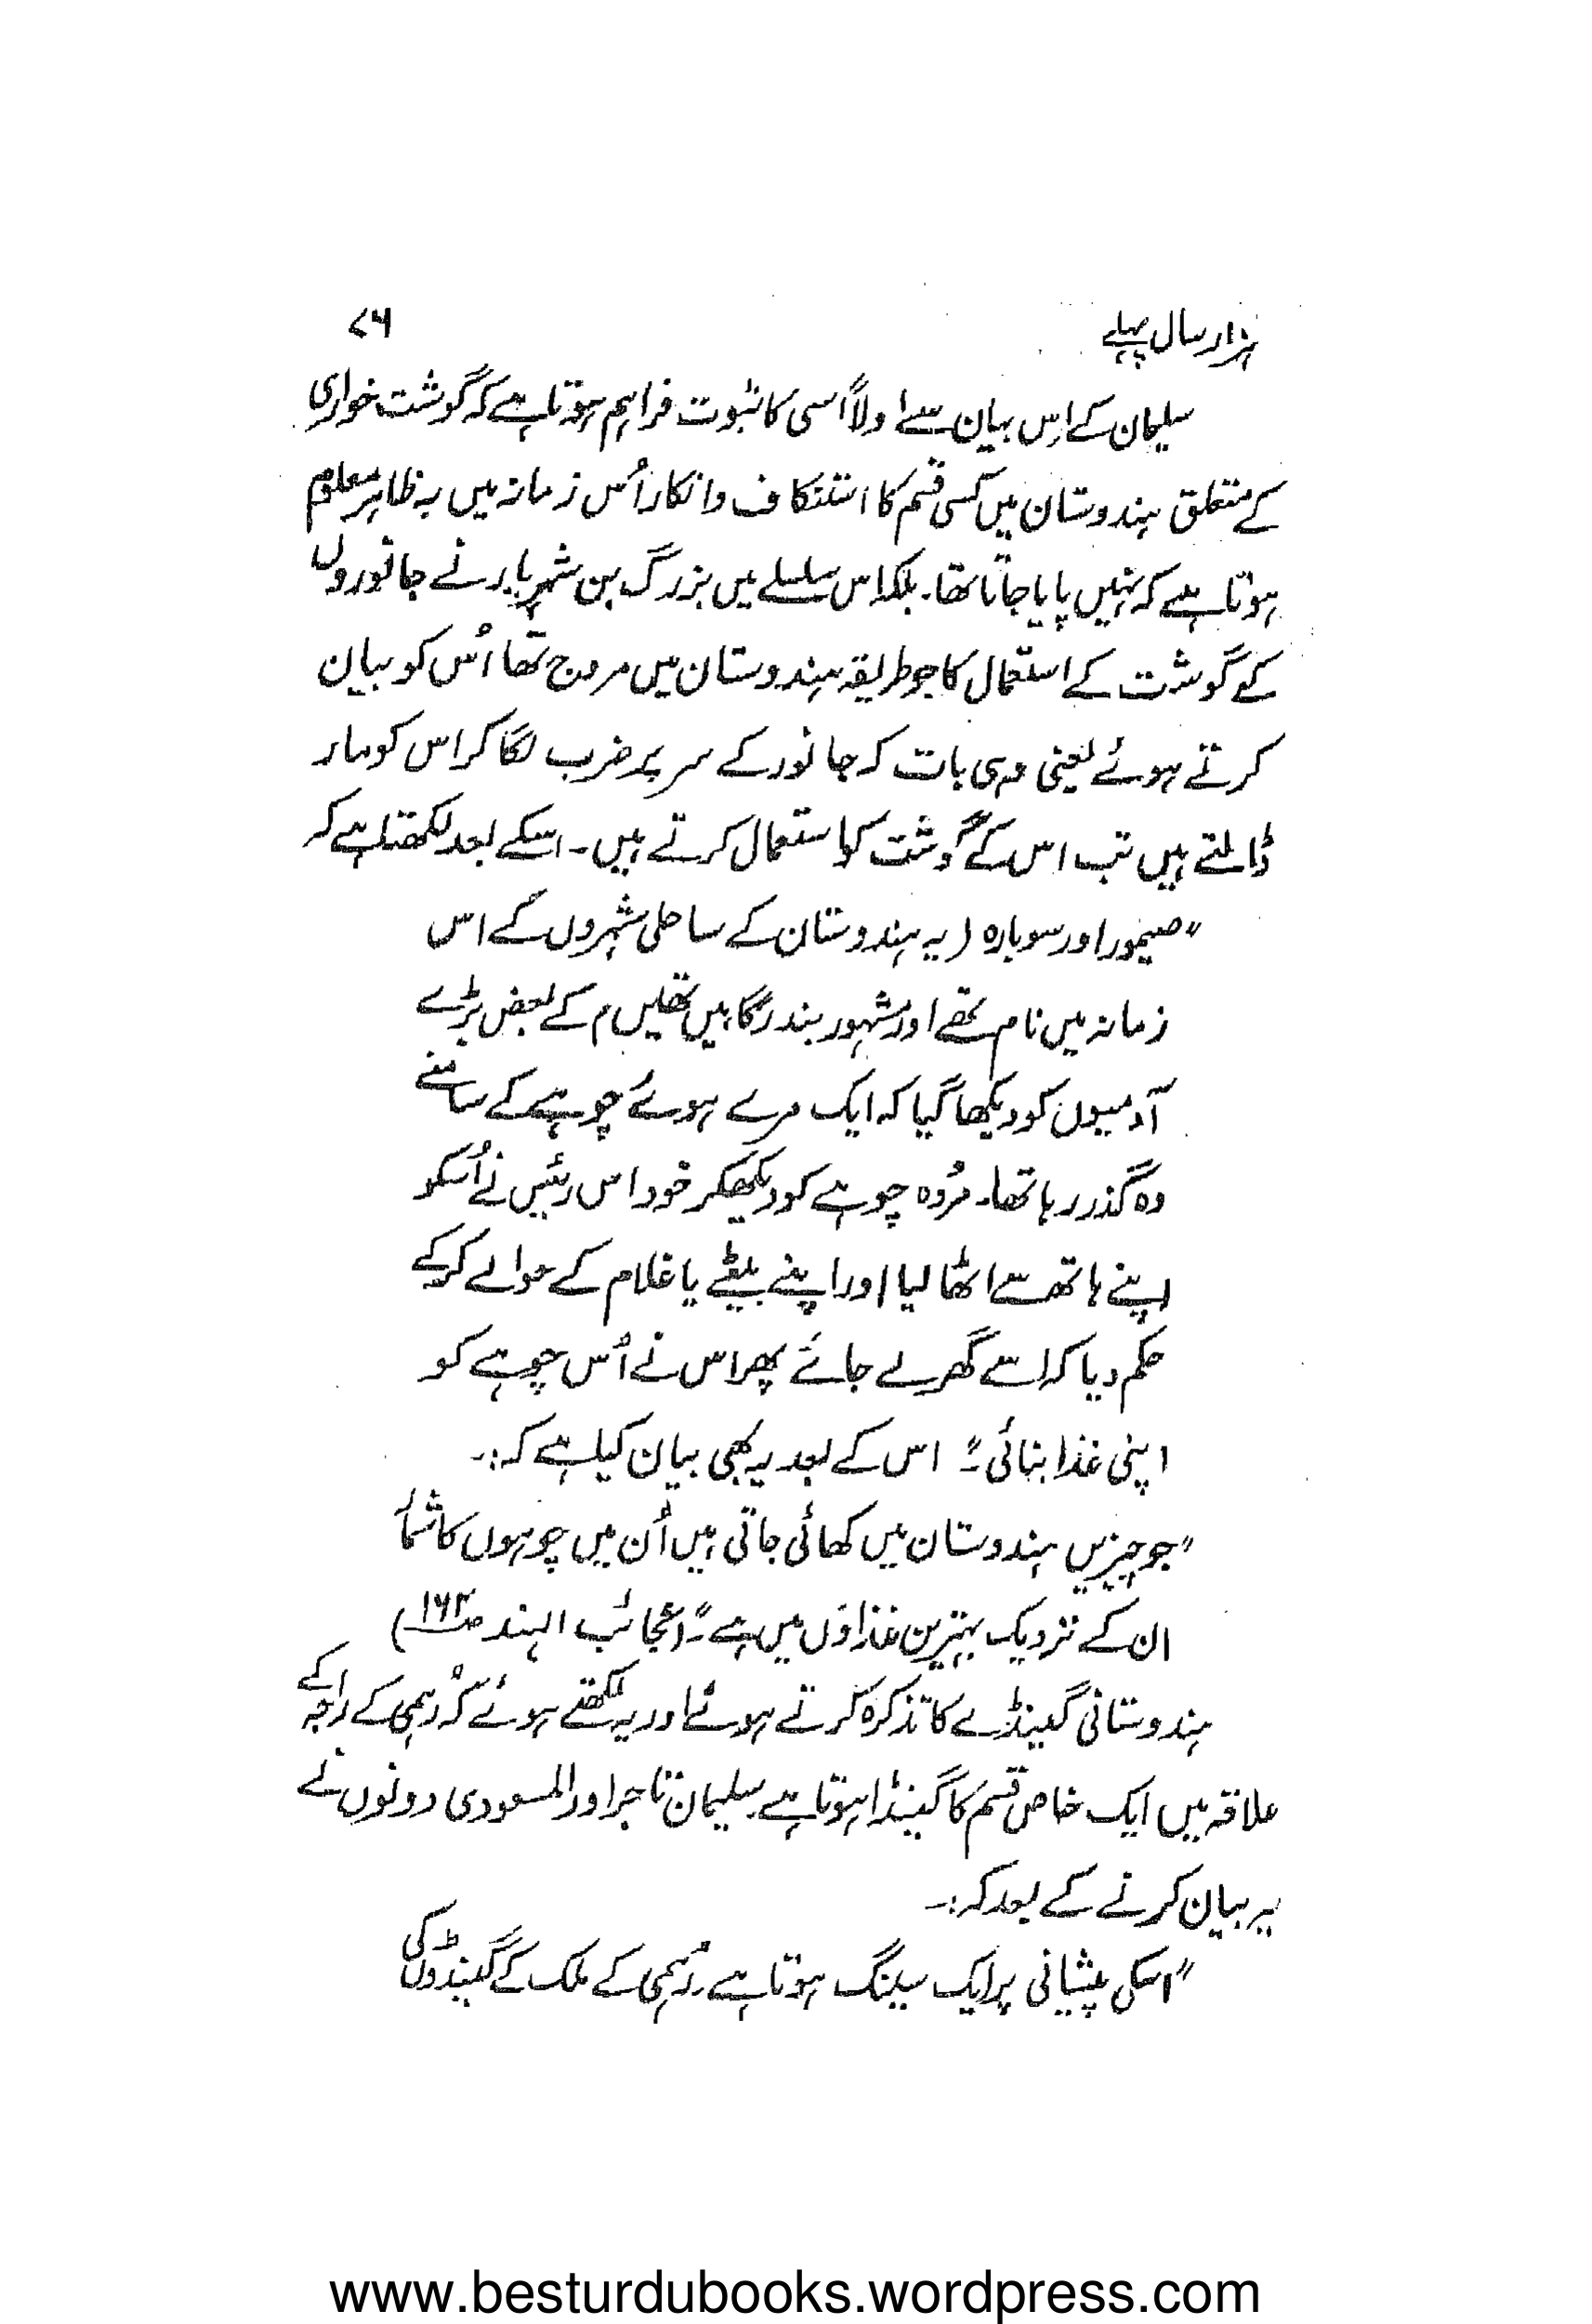 ہزار سال پہلے ۷۶
سلیمان کے اِس بیان سے اولاً اسی کا ثبوت فراہم ہوتا ہے کہ گوشت خواری
کے متعلق ہندوستان میں کسی قسم کا استنکاف و انکار اُس زمانہ میں بہ ظاہر معلوم
ہوتا ہے کہ نہیں پایا جاتا تھا۔ بلکہ اس سلسلے میں بزرگ بن شہریار نے جانوروں
کے گوشت کے استعمال کا جو طریقہ ہندوستان میں مروج تھا اُس کو بیان
کرتے ہوئے یعنی وہی بات کہ جانور کے سر پر ضرب لگا کر اس کو مار
ڈالتے ہیں تب اس کے گوشت کو استعمال کرتے ہیں۔ اسکے بعد لکھتا ہے کہ
"صیمور اور سوبارہ (یہ ہندوستان کے ساحلی شہروں کے اس
زمانہ میں نام تھے اور مشہور بندرگاہیں تھیں) کے بعض بڑے
آدمیوں کو دیکھا گیا کہ ایک مرے ہوئے چوہے کے سامنے
وہ گذر رہا تھا۔ مُردہ چوہے کو دیکھکر خود اس رئیس نے اُسکو
اپنے ہاتھ سے اٹھا لیا اور اپنے بیٹے یا غلام کے حوالے کر کے
حکم دیا کہ اسے گھر لے جائے پھر اس نے اُس چوہے کو
اپنی غذا بنائی۔" اس کے بعد یہ بھی بیان کیا ہے کہ:۔
"جو چیزیں ہندوستان میں کھائی جاتی ہیں اُن میں چوہوں کا شمار
ان کے نزدیک بہترین غذاؤں میں ہے۔" (عجائب الہند صـ۱۶۲)
ہندوستانی گینڈے کا تذکرہ کرتے ہوئے اور یہ لکھتے ہوئے کہ رہمی کے راجہ کے
علاقہ میں ایک خاص قسم کا گینڈا ہوتا ہے سلیمان تاجر اور المسعودی دونوں نے
یہ بیان کرنے کے بعد کہ:۔
"اسکی پیشانی پر ایک سینگ ہوتا ہے رہمی کے ملک کے گینڈوں کی
www.besturdubooks.wordpress.com